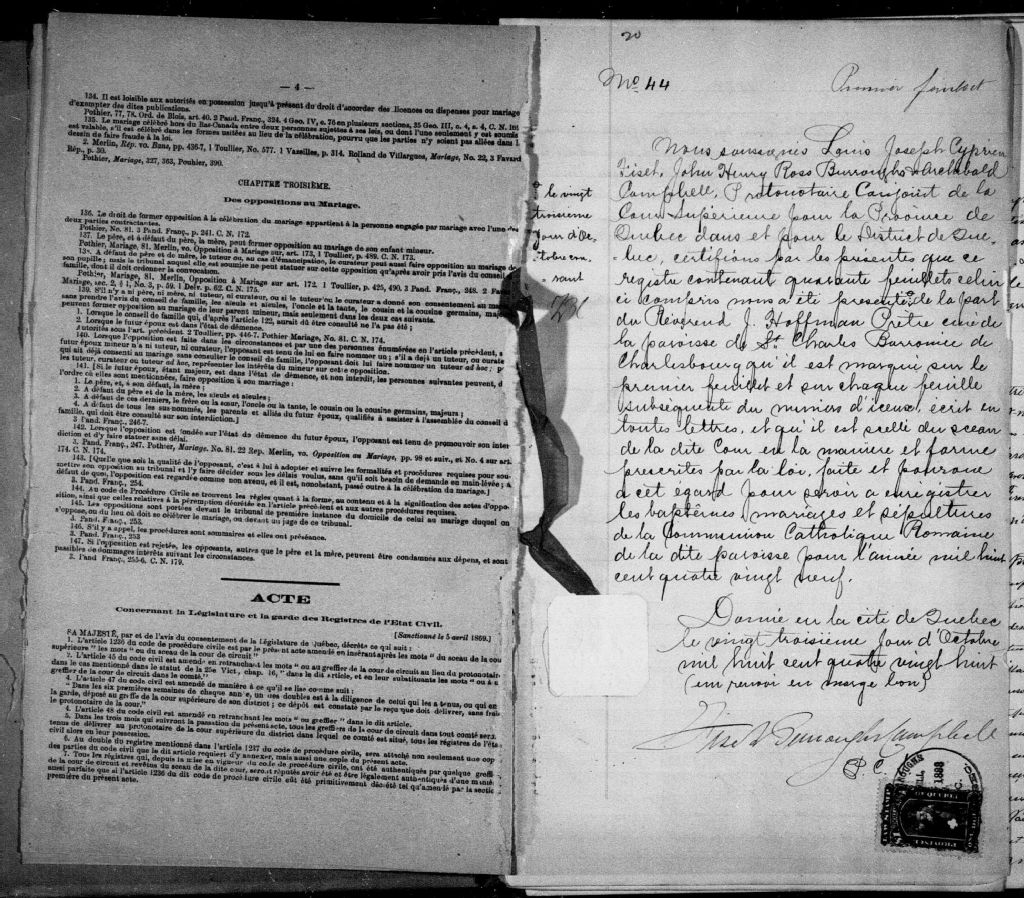 — 4 —
134. Il est loisible aux autorités en possession jusqu'à présent du droit d'accorder des licences ou dispenses pour mariage
d'exempter des dites publications.
Pothier, 77, 78. Ord. de Blois, art. 40. 2 Pand. Franç., 324. 4 Geo. IV, c. 76 en plusieurs sections, 35 Geo. III, c. 4, s. 4, C. N.
135. Le mariage célébré hors du Bas-Canada entre deux personnes sujettes à ses lois, ou dont l'une seulement y est soumise
est valable, s'il est célébré dans les formes usitées au lieu de la célébration, pourvu que les parties n'y soient pas allées dans l
dessein de faire fraude à la loi.
2. Merlin, Rép. vo. Bans, pp. 436-7, 1 Toullier, No. 577. 1 Vazeilles, p. 314. Rolland de Villargues, Mariage, No. 22, 3 Favard
Rép., p. 30.
Pothier, Mariage, 327, 363, Pouhier, 390.
CHAPITRE TROISIÈME.
Des oppositions au Mariage.
136. Le droit de former opposition à la célébration du mariage appartient à la personne engagée par mariage avec l'une des
deux parties contractantes.
Pothier, No. 81. 3 Pand. Franç., p. 241. C. N. 172.
137. Le père, et à défaut du père, la mère, peut former opposition au mariage de son enfant mineur.
Pothier, Mariage, 81. Merlin, vo. Opposition à Mariage sur art. 173, 1 Toullier, p. 489. C. N. 173.
138. A défaut de père et de mère, le tuteur ou, au cas d'émancipation, le curateur peut aussi faire opposition au mariage de
son pupille; mais le tribunal auquel elle est soumise ne peut statuer sur cette opposition qu'après avoir pris l'avis du conseil de
famille, dont il doit ordonner la convocation.
Pothier, Mariage, 81. Merlin, Opposition à Mariage sur art. 172. 1 Toullier, p. 425, 490. 3 Pand. Franç., 248. 2
Mariage, sec. 2, § 1, No. 3, p. 59. 1 Delv. p. 62. C. N. 175.
139. S'il n'y a ni père, ni mère, ni tuteur, ni curateur, ou si le tuteur ou le curateur a donné son consentement au mariage
sans prendre l'avis du conseil de famille, les aïeuls et aïeules, l'oncle et la tante, le cousin et la cousine germains, majeurs
peuvent former opposition au mariage de leur parent mineur, mais seulement dans les deux cas suivants.
1. Lorsque le conseil de famille qui, d'après l'article 122, aurait dû être consulté ne l'a pas été;
2. Lorsque le futur époux est dans l'état de démence.
Autorités sous l'art. précédent 2 Toullier, pp. 446-7. Pothier Mariage, No. 81. C. N. 174.
140. Lorsque l'opposition est faite dans les circonstances et par une des personnes énumérées en l'article précédent, si
futur époux mineur n'a ni tuteur, ni curateur, l'opposant est tenu de lui en faire nommer un; s'il a déjà un tuteur, ou curateur
qui ait déjà consenti au mariage sans consulter le conseil de famille, l'opposant doit lui faire nommer un tuteur ad hoc; p
les tuteur, curateur ou tuteur ad hoc, représenter les intérêts du mineur sur cette opposition.
141. [Si le futur époux, étant majeur, est dans l'état de démence, et non interdit, les personnes suivantes peuvent, d
l'ordre où elles sont mentionnées, faire opposition à son mariage:
1. Le père, et, à son défaut, la mère;
2. A défaut du père et de la mère, les aïeuls et aïeules;
3. A défaut de ces derniers, le frère ou la sœur, l'oncle ou la tante, le cousin ou la cousine germains, majeurs;
4. A défaut de tous les sus-nommés, les parents et alliés du futur époux, qualifiés à assister à l'assemblée du conseil d
famille, qui doit être consulté sur son interdiction.]
3 Pand. Franç., 246-7.
142. Lorsque l'opposition est fondée sur l'état de démence du futur époux, l'opposant est tenu de promouvoir son inter
diction et d'y faire statuer sans délai.
3. Pand. Franç., 247. Pothier, Mariage. No. 81. 22 Rep. Merlin, vo. Opposition au Mariage, pp. 98 et suiv., et No. 4 sur art.
174. C. N. 174.
143. [Quelle que soit la qualité de l'opposant, c'est à lui à adopter et suivre les formalités et procédures requises pour sou-
mettre son opposition au tribunal et l'y faire décider sous les délais voulus, sans qu'il soit besoin de demande en main-levée; à
défaut de quoi, l'opposition est regardée comme non avenu, et il est, nonobstant, passé outre à la célébration du mariage.]
3. Pand. Franç., 254.
144. Au code de Procédure Civile se trouvent les règles quant à la forme, au contenu et à la signification des actes d'oppo-
sition, ainsi que celles relatives à la péremption décrétée en l'article précédent et aux autres procédures requises.
145. Les oppositions sont portées devant le tribunal de première instance du domicile de celui au mariage duquel on
s'oppose, ou du lieu où doit se célébrer le mariage, ou devant un juge de ce tribunal.
3. Pand. Franç., 253.
146. S'il y a appel, les procédures sont sommaires et elles ont préséance.
3. Pand. Franç., 253
147. Si l'opposition est rejetée, les opposants, autres que le père et la mère, peuvent être condamnés aux dépens, et sont
passibles de dommages intérêts suivant les circonstances.
2. Pand Franç., 255-6. C. N. 179.
ACTE
Concernant la Législature et la garde des Registres de l'Etat Civil.
[Sanctionné le 5 avril 1869.]
SA MAJESTÉ, par et de l'avis du consentement de la Législature de Québec, décrète ce qui suit:
1. L'article 1236 du code de procédure civile est par le présent acte amendé en insérant après les mots "du sceau de la cour
supérieure" les mots "ou du sceau de la cour de circuit"
2. L'article 45 du code civil est amendé en retranchant les mots "ou au greffier de la cour de circuit au lieu du protonotaire
dans le cas mentionné dans le statut de la 25e Vict., chap. 16," dans le dit article, et en leur substituants les mots "ou à u
greffier de la cour de circuit dans le comté."
4. L'article 47 du code civil est amendé de manière à ce qu'il se lise comme suit:
"Dans les six premières semaines de chaque année, un des doubles est à la diligence de celui qui les a tenus, ou qui en
la garde, déposé au greffe de la cour supérieure de son district; ce dépôt est constaté par le reçu que doit délivrer, sans frais
le protonotaire de la cour."
4. L'article 48 du code civil est amendé en retranchant les mots "ou greffier" dans le dit article.
5. Dans les trois mois qui suivront la passation du présent acte, tous les greffiers de la cour de circuit dans tout comté seront
tenus de délivrer au protonotaire de la cour supérieure du district dans lequel ce comté est situé, tous les régistres de l'état
civil alors en leur possession.
6. Au double du registre mentionné dans l'article 1237 du code de procédure civile, sera attaché non seulement une cop
des parties du code civil que le dit article requiert d'y annexer, mais aussi une copie du présent acte.
7. Tous les régistres qui, depuis la mise en vigueur du code de procédure civile, ont été authentiqués par quelque greffi
de la cour de circuit et revêtus du sceau de la dite cour, seront réputés avoir été et être légalement authentiqués d'une maniè
aussi parfaite que si l'article 1236 du dit code de procédure civile eût été primitivement décrété tel qu'amendé par la sectio
première du présent acte.
20
No 44
Premier feuillet
Nous soussignés Louis Joseph Cyprien
Fiset, John Henry Ross Burroughs & Archibald
Campbell, Protonotaire Conjoint de la
Cour Supérieure pour la Province de
Québec dans et pour le District de Qué-
bec, certifions par les présentes que ce
registre contenant quarante feuillets celui
ci compris nous a été présenté de la part
du Révérend J. Hoffman Prêtre curé de
la paroisse de St Charles Borromée de
Charlesbourg qu'il est marqué sur le
premier feuillet et sur chaque feuille
subséquente du numéro d'iceux, écrit en
toutes lettres, et qu'il est scellé du sceau
de la dite Cour en la manière et forme
prescrites par la loi, faite et pourvue
à cet égard pour servir à enregistrer
les baptêmes, mariages et sépultures
de la Communion Catholique Romaine
de la dite paroisse pour l'année mil huit
cent quatre vingt neuf.
& le vingt
troisième
jour d'Oc-
tobre cou-
rant
Donné en la cité de Québec
le vingt troisième jour d'Octobre
mil huit cent quatre vingt huit
(un renvoi en marge bon)
Fiset Burroughs Campbell
P. C.
1888
LAW STAMP
PROVINCE
QUEBEC